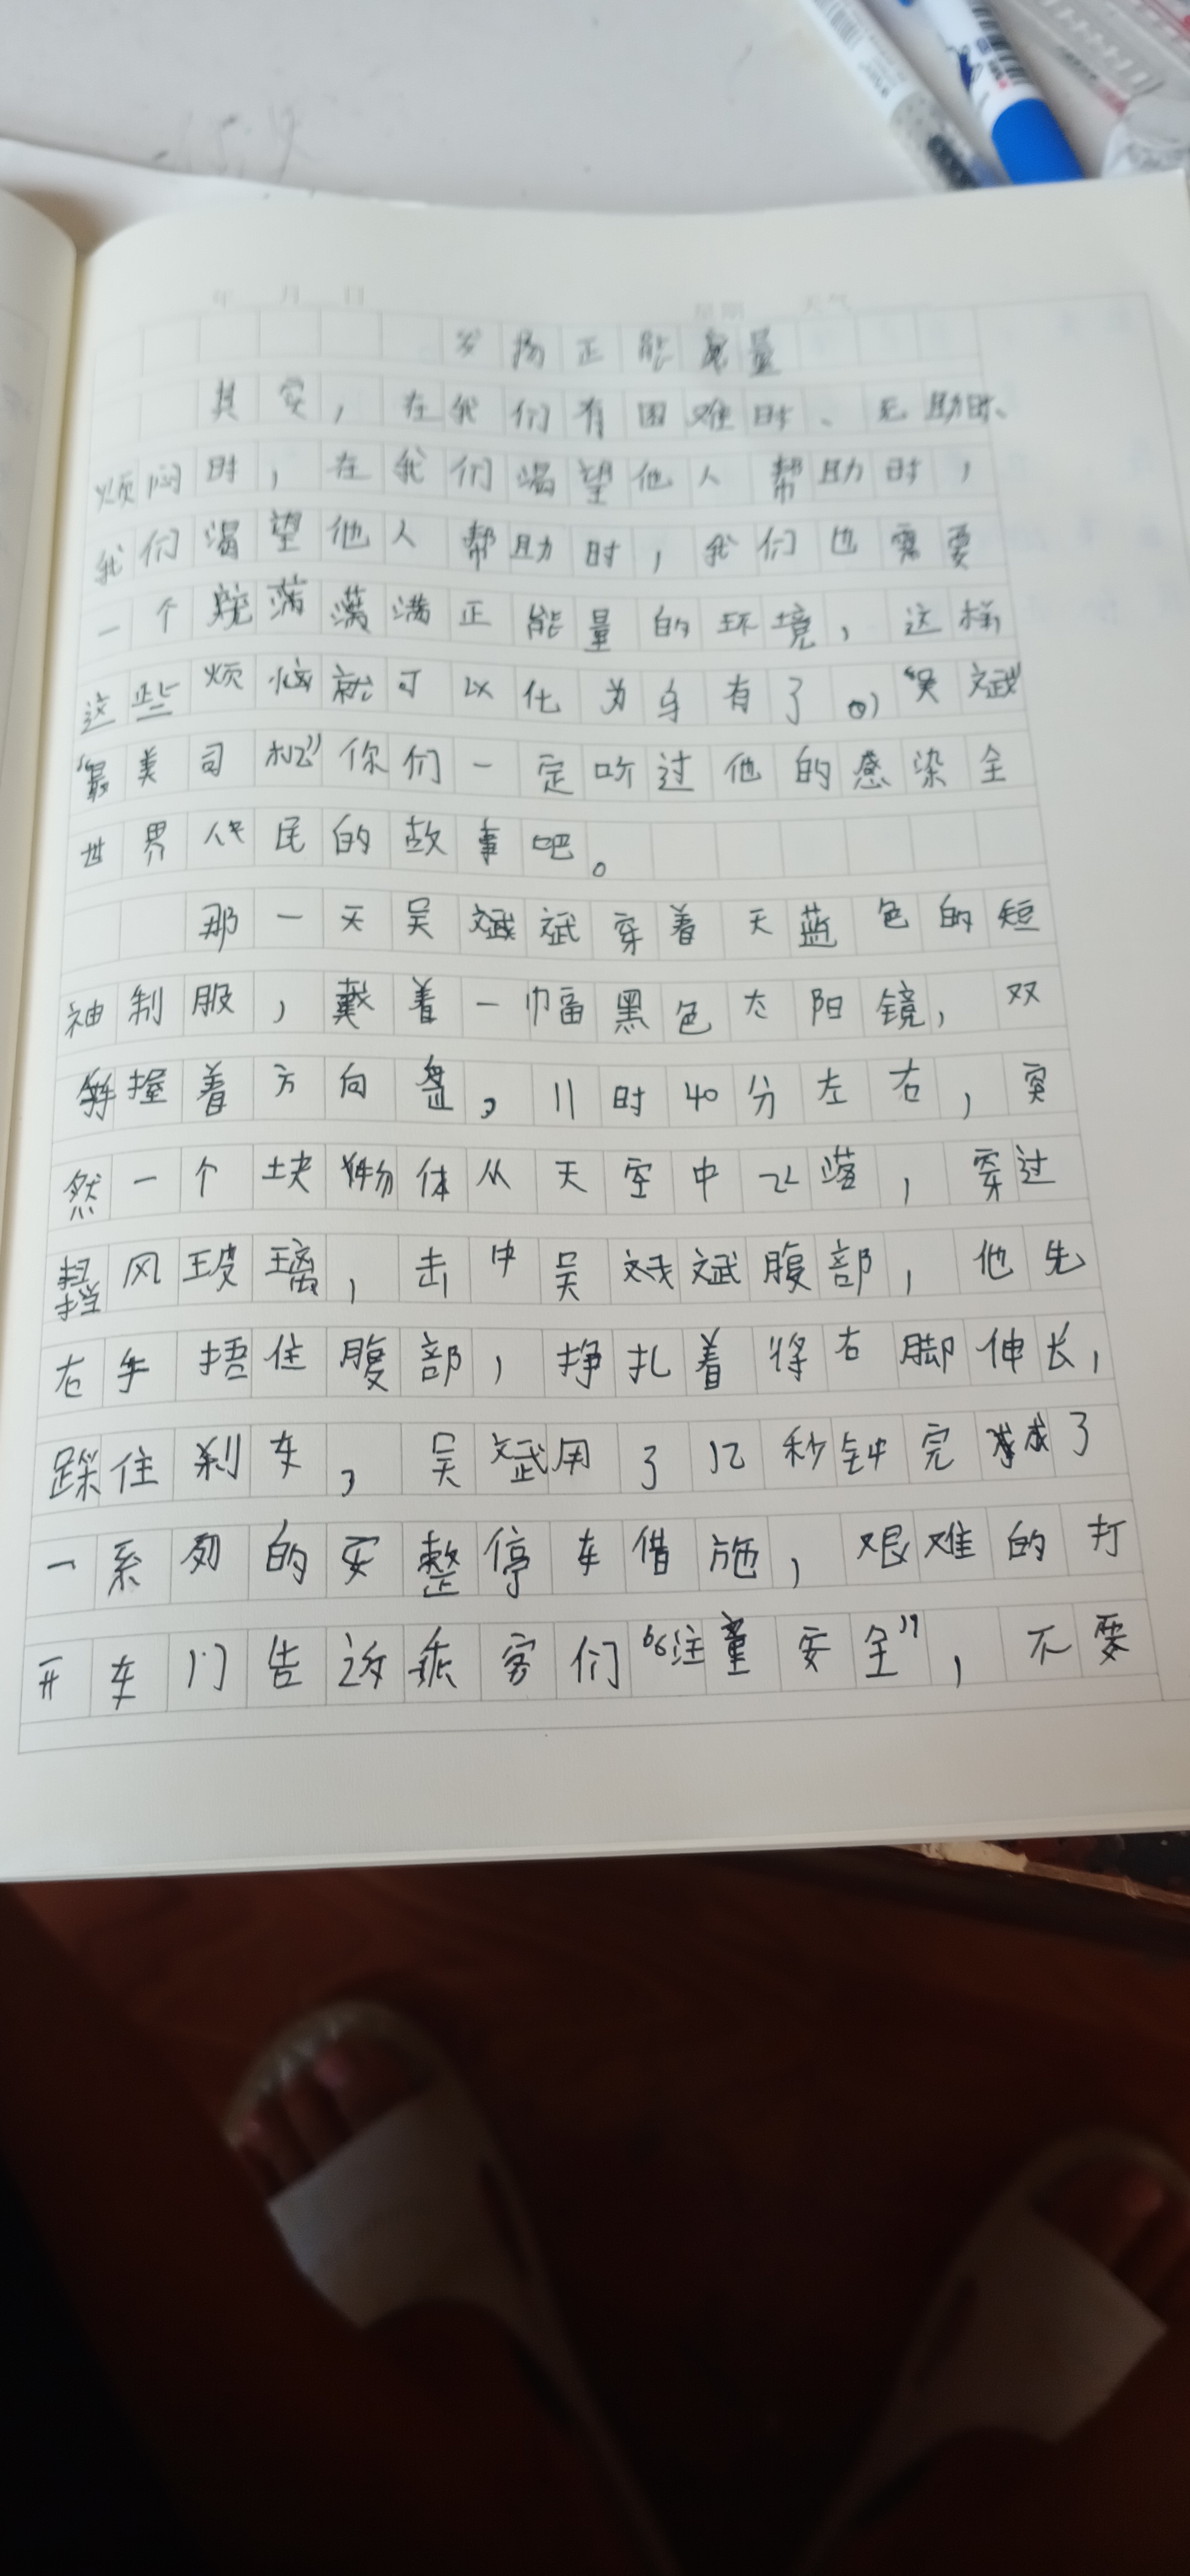 年 月 日 星期 天气
发扬正能量
其实，在我们有困难时、无助时、
烦闷时，在我们渴望他人帮助时，
我们渴望他人帮助时，我们也需要
一个满满正能量的环境，这样
这些烦恼就可以化为乌有了。“吴斌”
“最美司机”你们一定听过他的感染全
世界人民的故事吧。
那一天吴斌穿着天蓝色的短
袖制服，戴着一幅黑色太阳镜，双
握着方向盘，11时40分左右，突
然一个块物体从天空中飞落，穿过
挡风玻璃，击中吴斌腹部，他先
右手捂住腹部，挣扎着将右脚伸长，
踩住刹车，吴斌用了12秒钟完成了
一系列的安整停车借施，艰难的打
开车门告诉乘客们“注意安全”，不要